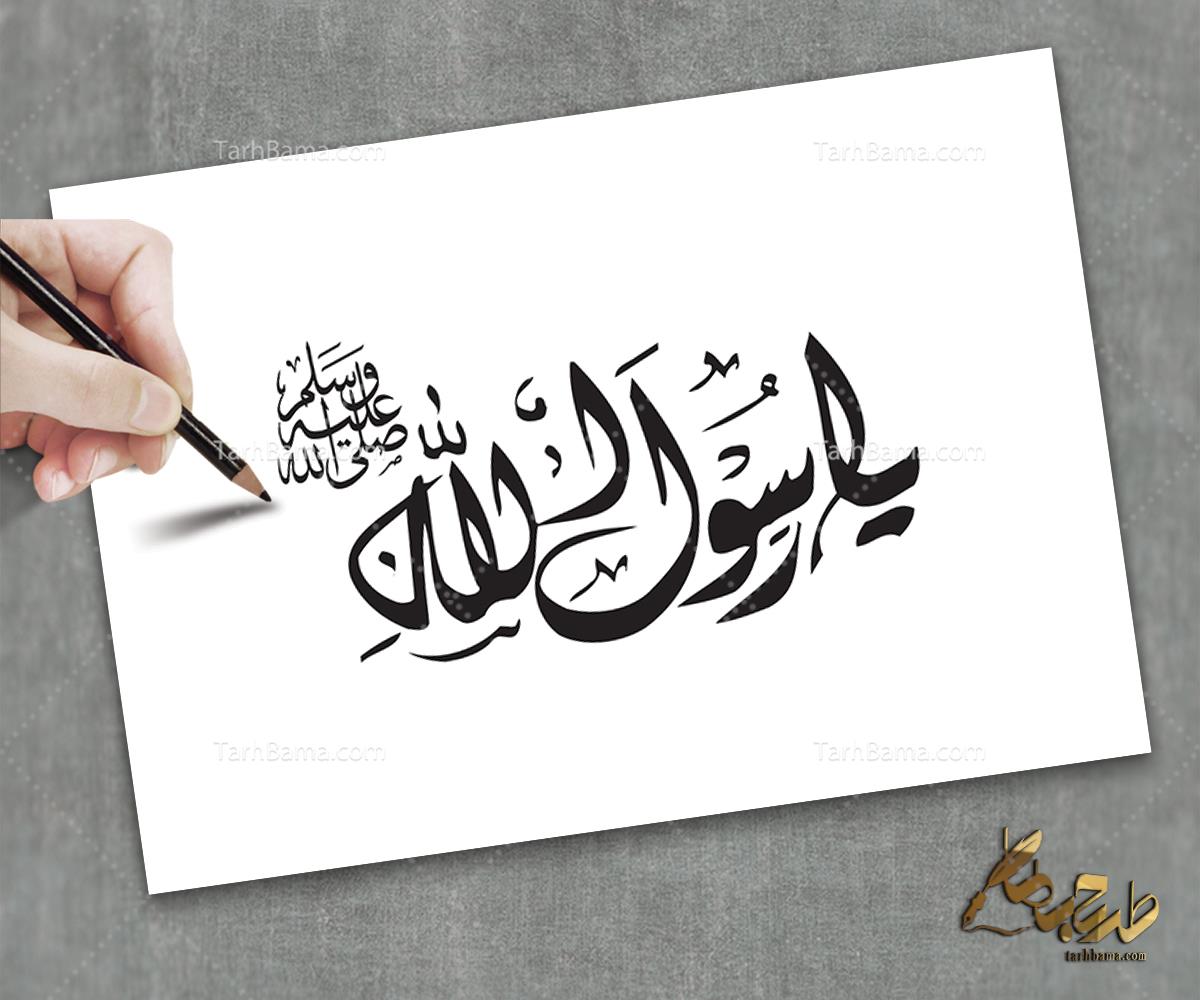 TarhBama.com TarhBama.com
يا رسُول اللهِ
صلى الله
عليه
وسلم
TarhBama.com TarhBama.com
TarhBama.com TarhBama.com
طرح با ما
tarhbama.com